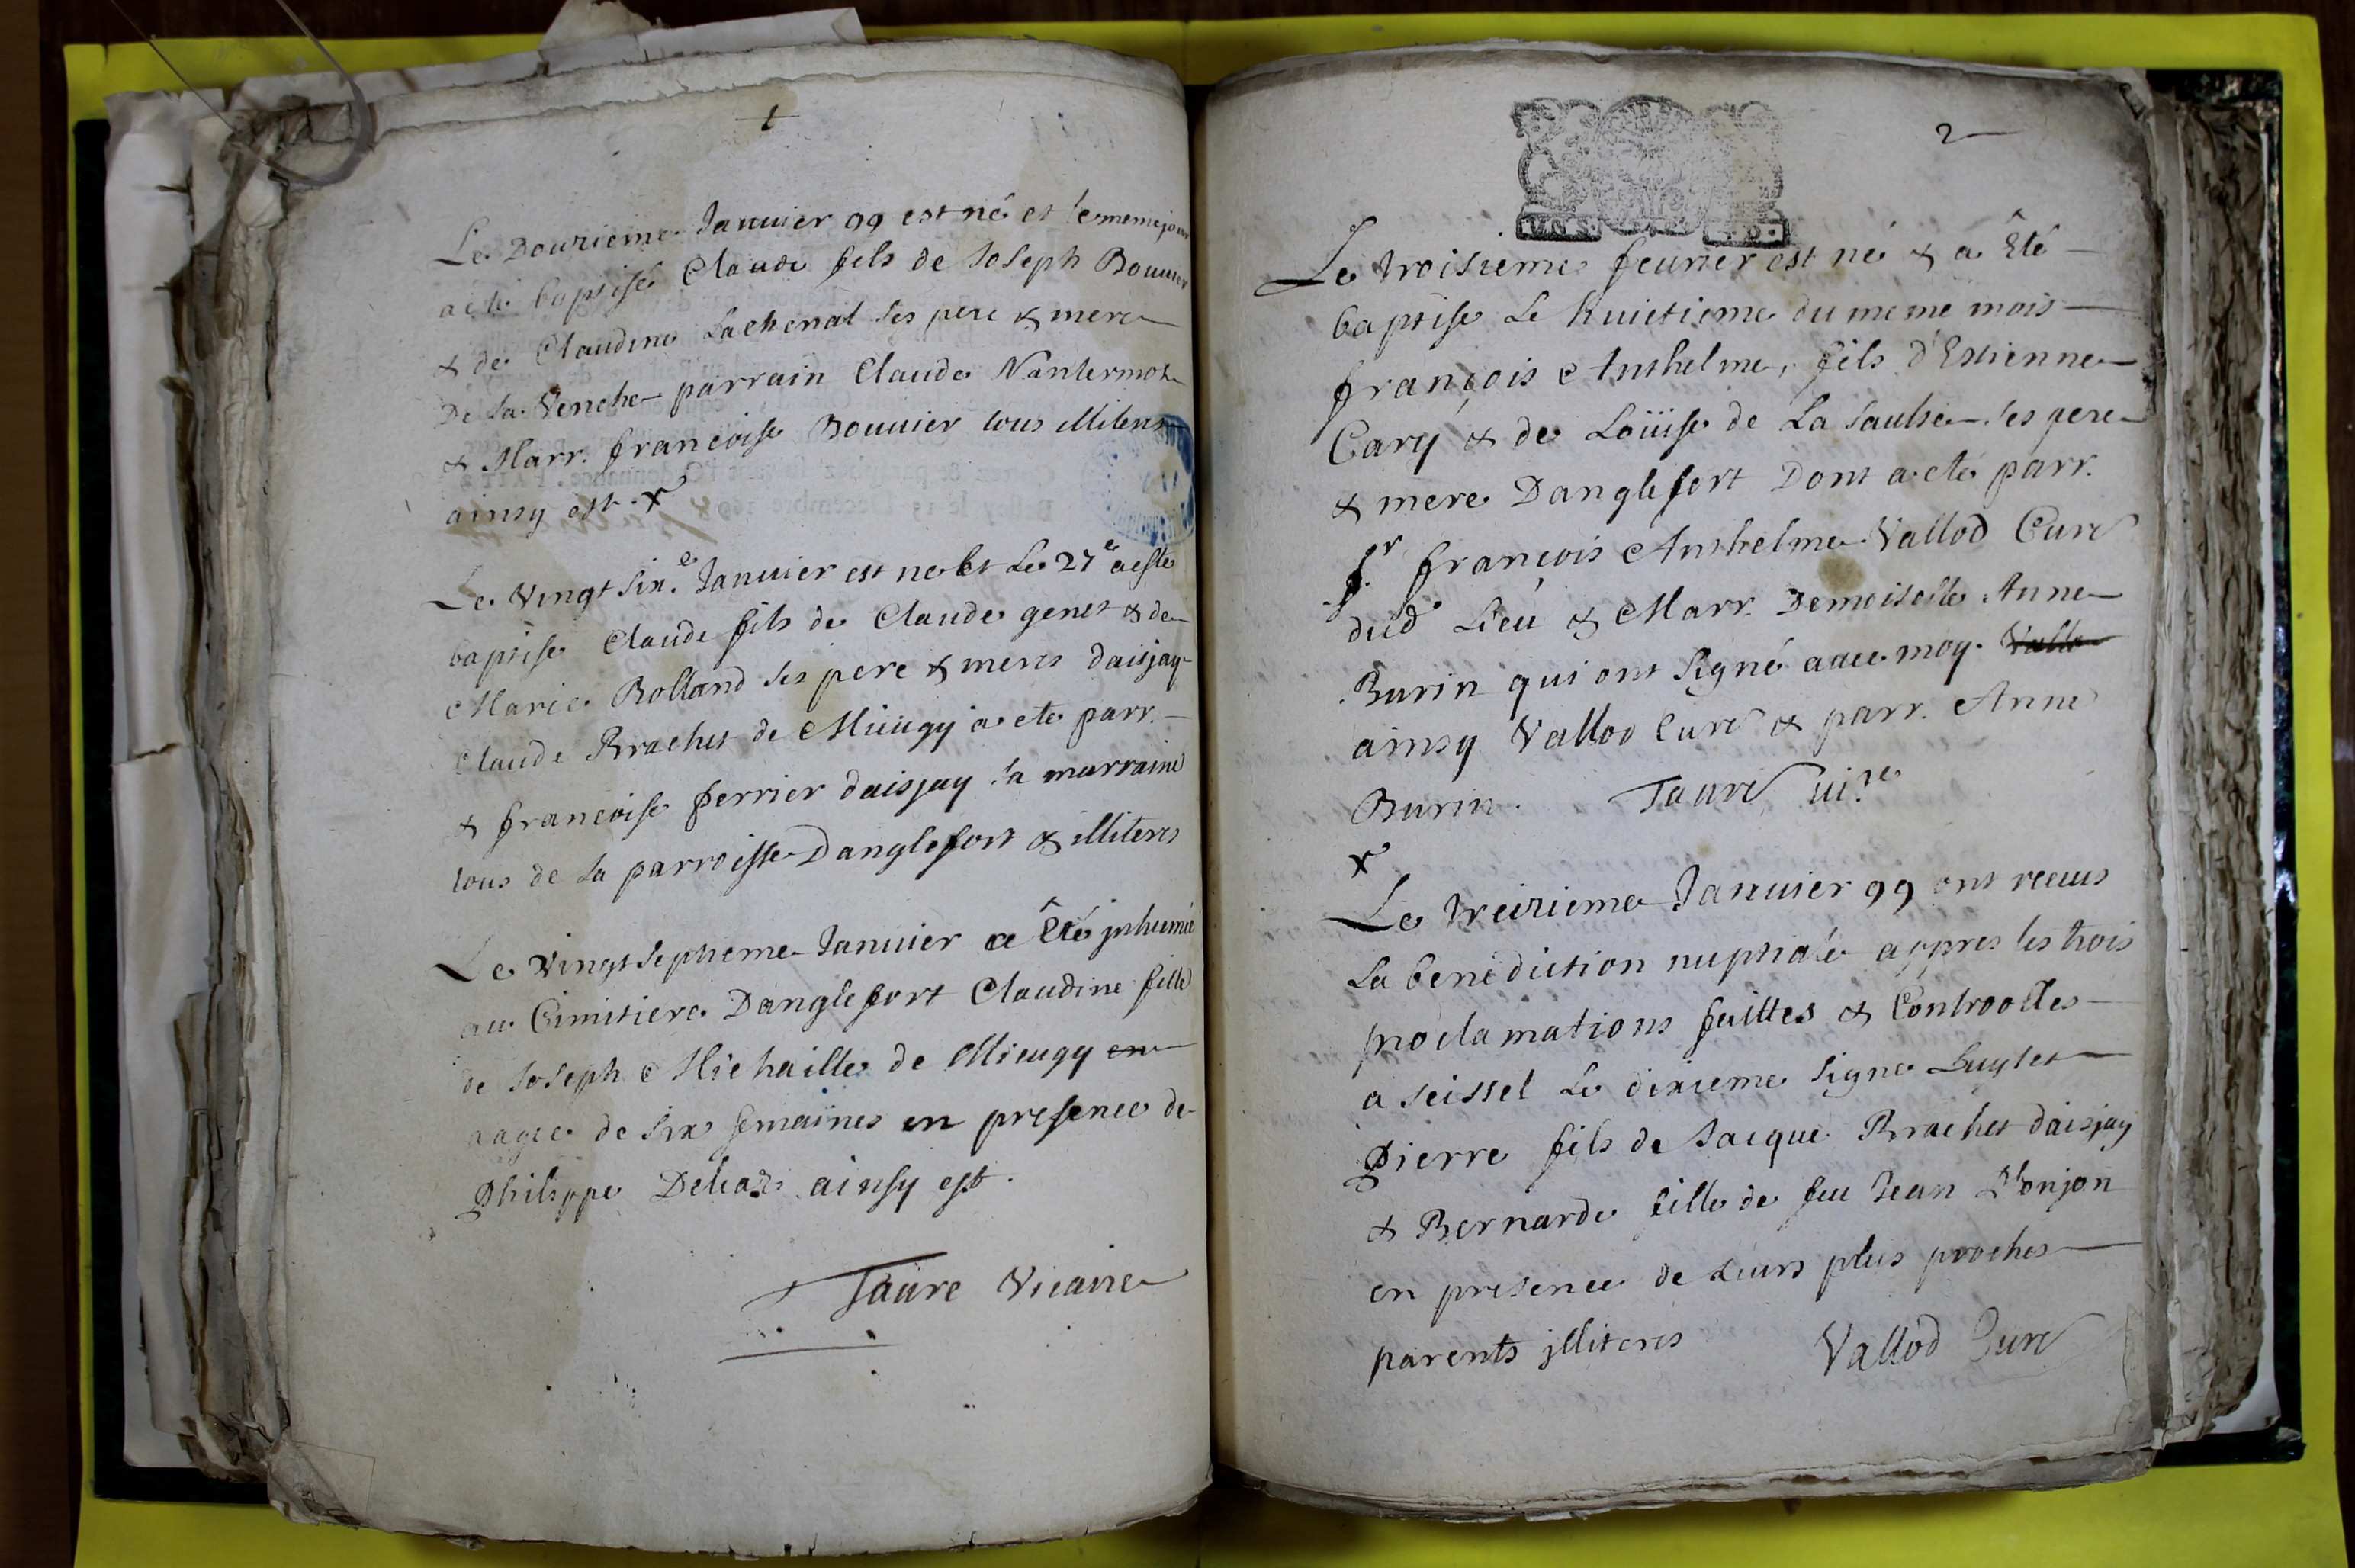 1
Le Douzieme Januier 99 est né et le meme jour
a ete baptisé Claude fils de Joseph Bouuier
& de Claudine Lachenal ses pere & mere
De la Venche parrain Claude Nantermoz
& Marr. francoise Bouuier tous illiteres
ainsy est. x
Le vingt six.e Januier est ne Et Le 27e a este
baptise Claude fils de Claude genet & de
Marie Rolland ses pere & meres daisjay
Claude Brachet de Mieugy a ete parr.
& francoise perrier daisjay sa marraine
tous de la parroisse Danglefort & illiteres
Le vingt septieme Januier a Êté jnhumée
au Cimitiere Danglefort Claudine fille
de Joseph Michaille de Mieugy en
aagée de six semaines en presence de
Philippe ainsy est.
Faure Vicaire
2
Le troisieme feurier est né & a Êté
baptise Le huictieme du meme mois
françois Anthelme, fils d'Estienne
Cary & de Loüise de La saulse ses pere
& mere Danglefort Dont a ete parr.
Sr. françois Anthelme Vallod Curé
dud Lieu & Marr. Demoiselle Anne
Burin qui ont signé auec moy. Vallo
ainsy Vallod Curé & parr. Anne
Burin. Faure vi.re
x
Le treizieme Januier 99 ont receus
La benediction nuptiale appres les trois
proclamations faittes & Controolles
a seissel Le dixieme signe Guyset
Pierre fils de Jacque Brachet daisjay
& Bernarde fille de feu Jean Donjon
en presence de Leurs plus proches
parents jlliteres Vallod Curé